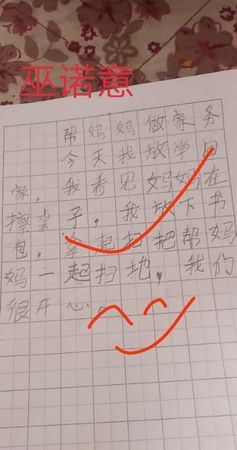 巫诺意
帮妈妈做家务
今天我放学回
家，我看见妈妈在
擦桌子，我放下书
包，拿起扫把帮妈
妈一起扫地，我们
很开心。